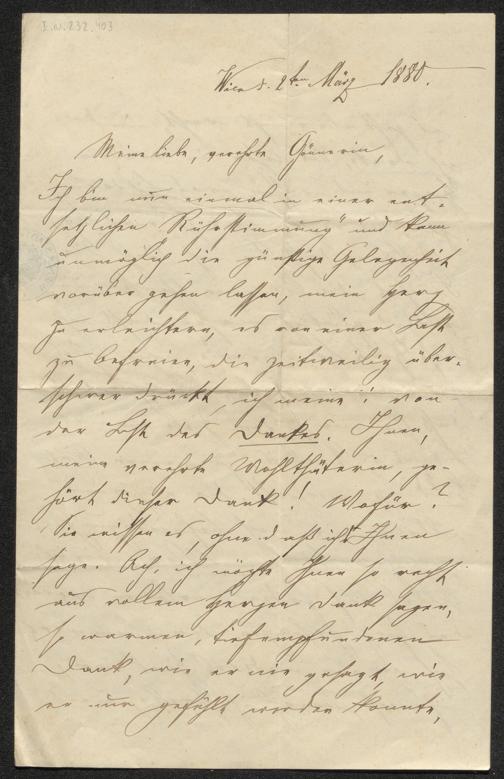 I.N. 232.403
Wien d. 2ten März 1880.
Meine liebe, verehrte Gönnerin,
Ich bin nun einmal in einer ent-
setzlichen „Rührstimmung" und kann
unmöglich die günstige Gelegenheit
vorüber gehen lassen, mein Herz
zu erleichtern, es von einer Last
zu befreien, die zeitweilig über-
schwer drückt, ich meine: von
der Last des Dankes. Ihnen,
meine verehrte Wohlthäterin, ge-
hört dieser Dank! Wofür?
Sie wissen es, ohne daß ich's Ihnen
sage. Ach, ich möchte Ihnen so recht
aus vollem Herzen Dank sagen,
so warmen, tiefempfundenen
Dank, wie er nie gesagt, wie
er nur gefühlt werden konnte,